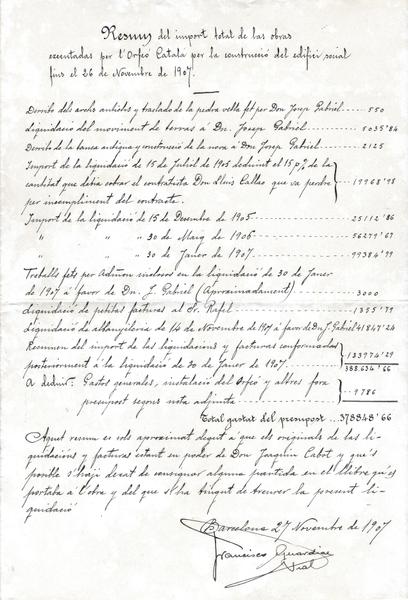 Resum del import total de las obras
executadas per l'Orfeó Català per la construcció del edifici social
fins el 26 de Novembre de 1907.
Derribo del archs antichs y traslado de la pedra vella fet per Don Josep Gabriel 550
Liquidació del moviment de terras á Dn. Josep Gabriel 5035'84
Derribo de la tanca antigua y construcció de la nova á Don Josep Gabriel 2125
Import de la liquidació de 15 de Juliol de 1905 deduint el 15 p% de la
cantitat que debia cobrar el contratista Don Lluis Callao que va perdre
per incompliment del contracte. 19968'98
Import de la liquidació de 15 de Desembre de 1905 25112'86
" " " 30 de Maig de 1906 56279'67
" " " 30 de Janer de 1907 99384'99
Treballs fets per inclosos en la liquidació de 30 de Janer
de 1907 á favor de Dn. J. Gabriel (Aproximadament) 3000
Liquidació de petitas facturas al Sr. Rafel 1355'79
Liquidació de Albanyileria de 14 de Novembre de 1907 á favor de Dn J. Gabriel 41847'24
Resumen del import de las liquidacions y facturas conformadas
posteriorment á la liquidació de 30 de Janer de 1907 133974'29
388.634'66
A deduir. Gastos generales, instalació del Orfeó y altres fora
presupost segons nota adjunta 9786
Total gastat del presupost 378848'66
Aquest resum es sols aproximat degut á que els originals de las li-
quidacions y facturas estant en poder de Don Joaquin Cabot y que's
posible s'haji deixat de consignar alguna partida en el llibre qu'es
portaba á l'obra y del que s'ha tingut de treurer la present li-
quidació
Barcelona 27 Novembre de 1907
Francisco Guardia
Vial